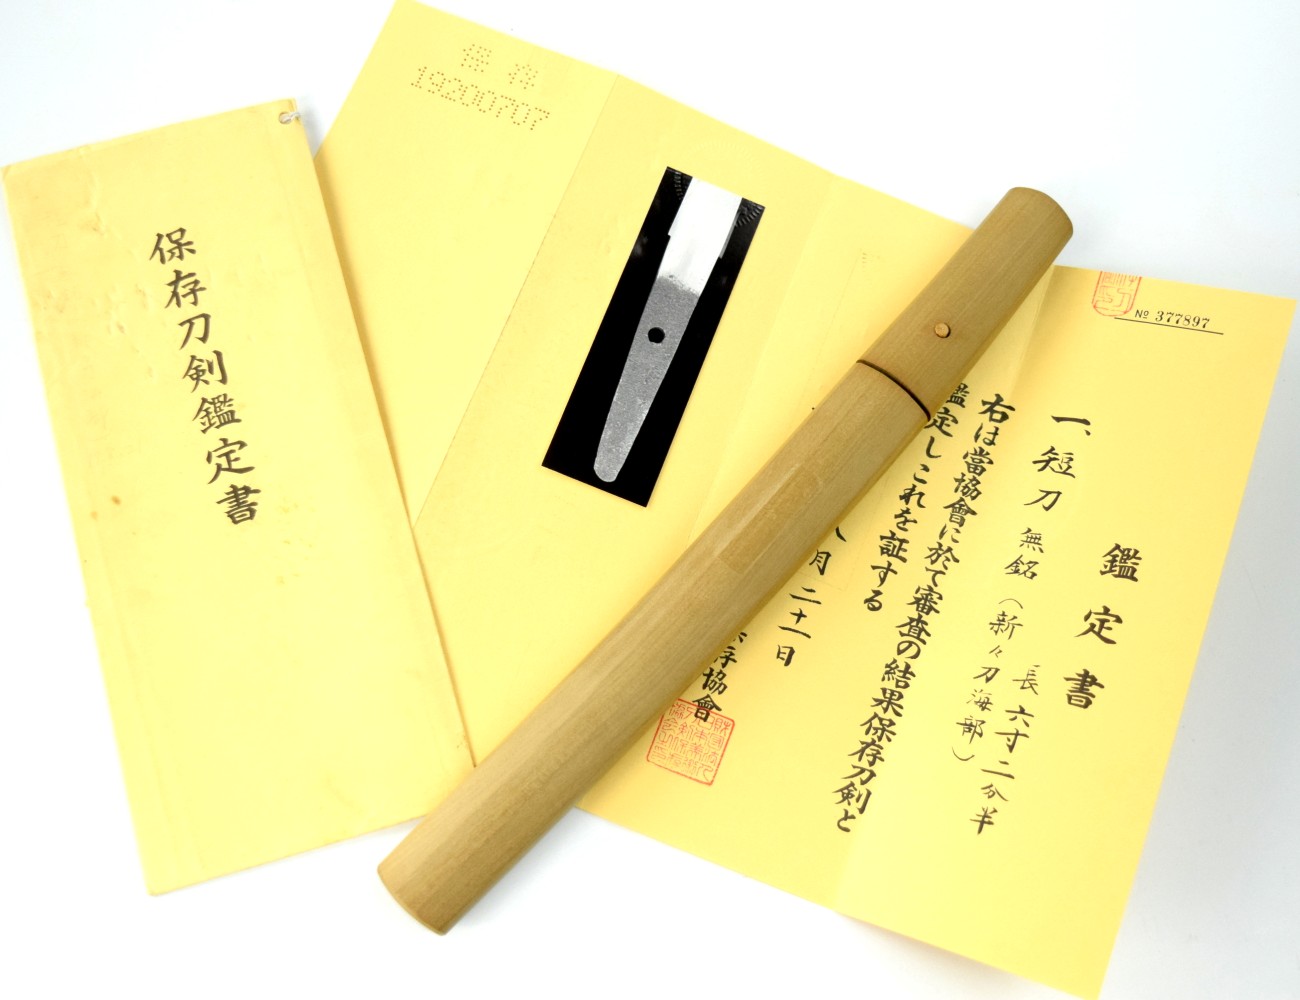 保存刀剣鑑定書
保存
19200707
№ 377897
鑑定書
一、短刀 無銘（新々刀海部）
長 六寸二分半
右は當協會に於て審査の結果保存刀剣と
鑑定しこれを証する
八月二十一日
存協會